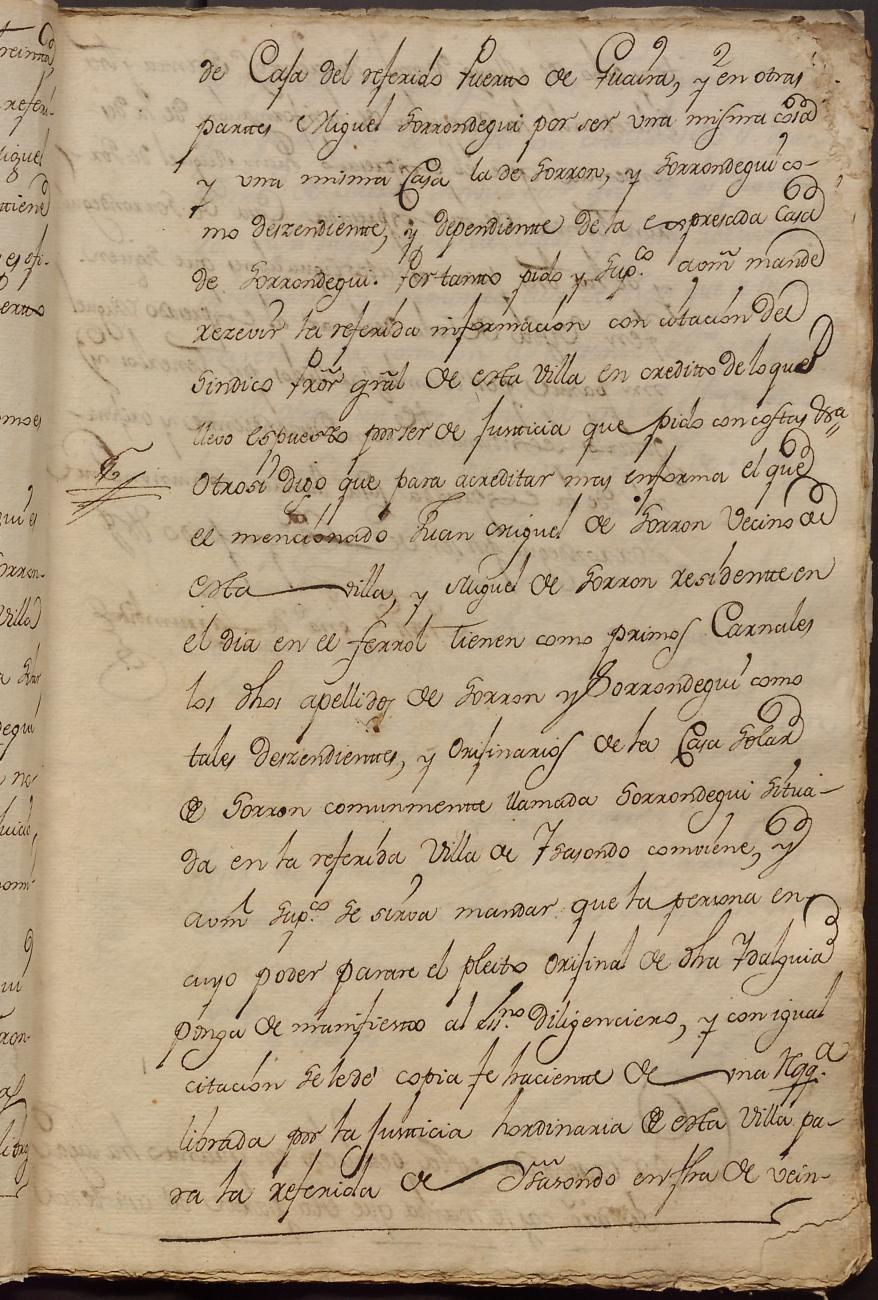 de Casa del referido Puerto de Guaira, y en otras
parttes Miguel Sorrondegui por ser una misma cosa
y una misma Casa la de Sorron, y Sorrondegui co-
mo deszendientte, y dependientte de la espresada Casa
de Sorrondegui. Por tanto pido y Supco. a vm. mande
rezevir la referida información con citación del
Sindico Pror. gral de esta Villa en creditto de lo que
llevo espuesto por ser de Justicia que pido con costas &ra
Otrosi digo que para acreditar mas informa el que
el mencionado Juan Miguel de Sorron Vecino de
esta villa, y Miguel de Sorron residentte en
el dia en el ferrol tienen como primos Carnales
los dhos apellidos de Sorron y Sorrondegui como
tales deszendienttes, y orisinarios de la Casa Solar
de Sorron comunmentte llamada Sorrondegui Situa-
da en la referida Villa de Ysasondo comviene, y
a vm. Supco. se sirva mandar que la persona en
cuyo poder parare el pleito orisinal de dha Ydalguia
ponga de manifiesto al Ssno. Diligenciero, y con igual
citación se le dé copia fe hacientte de una Rqqa.
librada por la Justicia hordinaria de esta Villa pa-
ra la referida de Ysasondo en fha de vein-